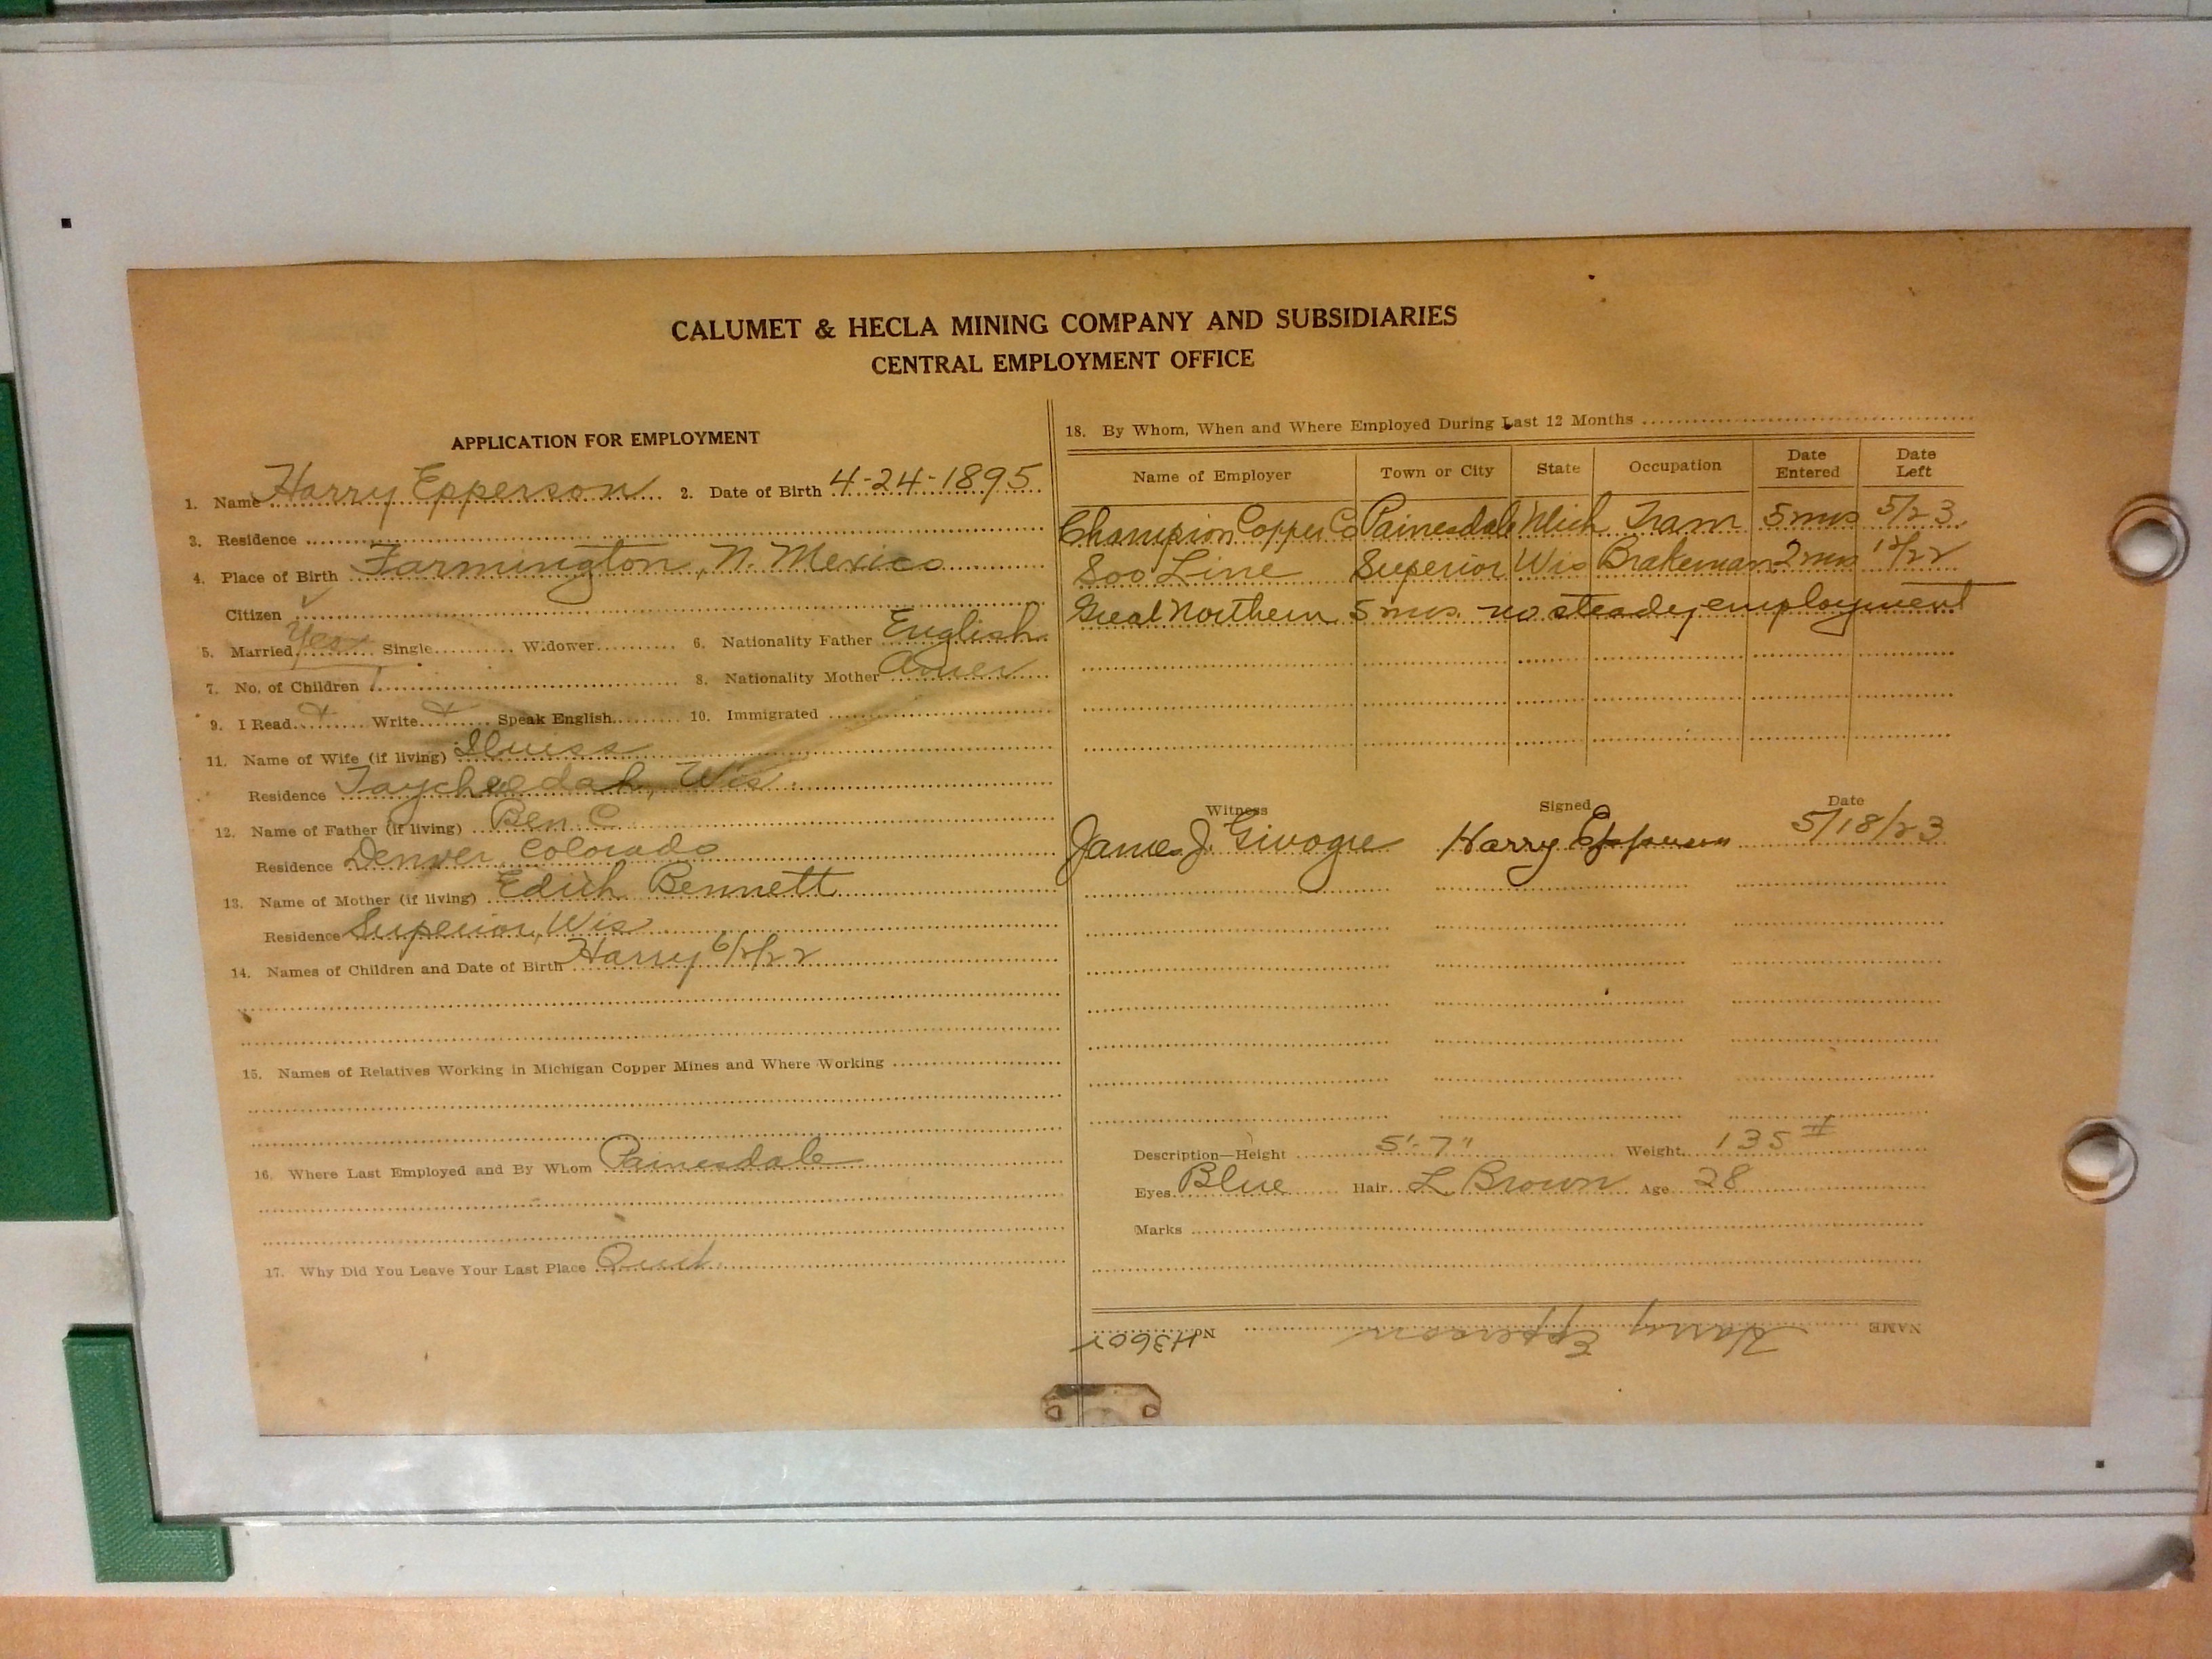 CALUMET & HECLA MINING COMPANY AND SUBSIDIARIES
CENTRAL EMPLOYMENT OFFICE
APPLICATION FOR EMPLOYMENT
1. Name Harry Epperson 2. Date of Birth 4-24-1895
3. Residence
4. Place of Birth Farmington, N. Mexico
Citizen
5. Married Yes Single Widower 6. Nationality Father English
7. No. of Children 1 8. Nationality Mother Amer
9. I Read Write Speak English 10. Immigrated
11. Name of Wife (if living)
Residence Taycheedah, Wis
12. Name of Father (if living) Ben C
Residence Denver, Colorado
13. Name of Mother (if living) Edith Bennett
Residence Superior, Wis
14. Names of Children and Date of Birth Harry 6/2/22
15. Names of Relatives Working in Michigan Copper Mines and Where Working
16. Where Last Employed and By Whom Painesdale
17. Why Did You Leave Your Last Place Quit
18. By Whom, When and Where Employed During Last 12 Months
Name of Employer Town or City State Occupation Date Entered Date Left
Champion Copper Co Painesdale Mich Tram 5 mos 5/23
Soo Line Superior Wis Brakeman 2 mos 12/22
Great Northern 5 mos. no steady employment
Witness Signed Date
James J. Harry Epperson 5/18/23
Description—Height 5'-7" Weight 135 #
Eyes Blue Hair L Brown Age 28
Marks
NAME Harry Epperson No.